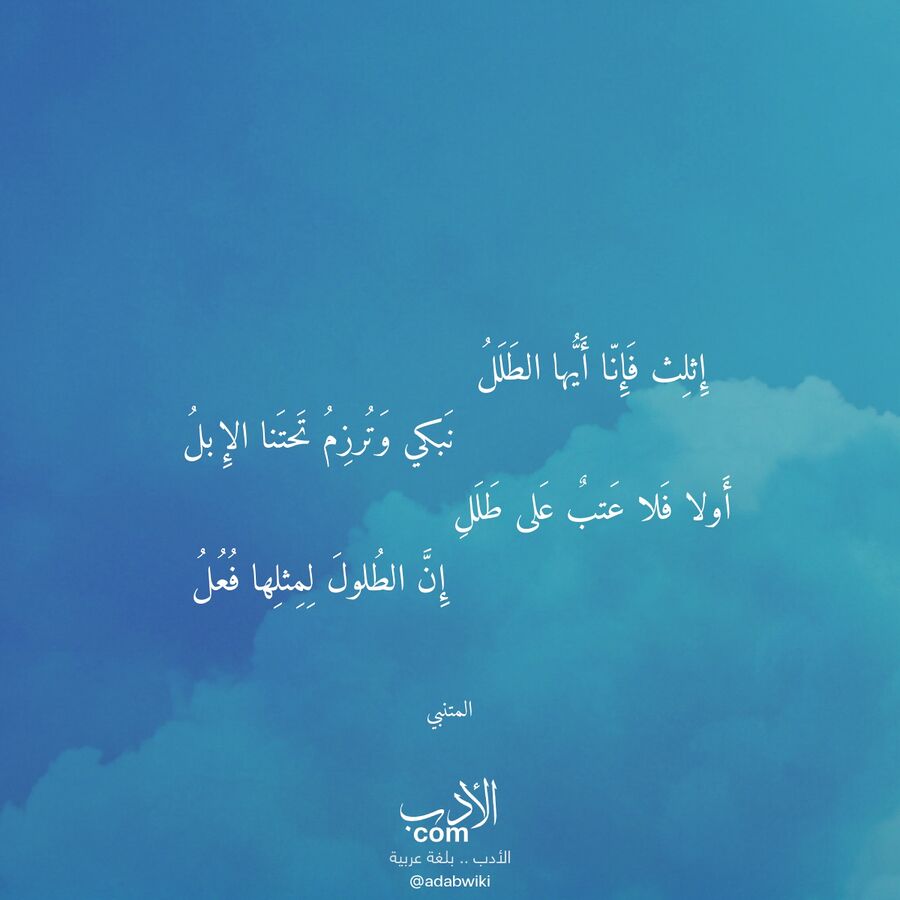 إِثلِث فَإِنّا أَيُّها الطَلَلُ
نَبكي وَتُرزِمُ تَحتَنا الإِبلُ
أَولا فَلا عَتبٌ عَلى طَلَلِ
إِنَّ الطُلولَ لِمِثلِها فُعُلُ
المتنبي
الأدب
com
الأدب .. بلغة عربية
@adabwiki